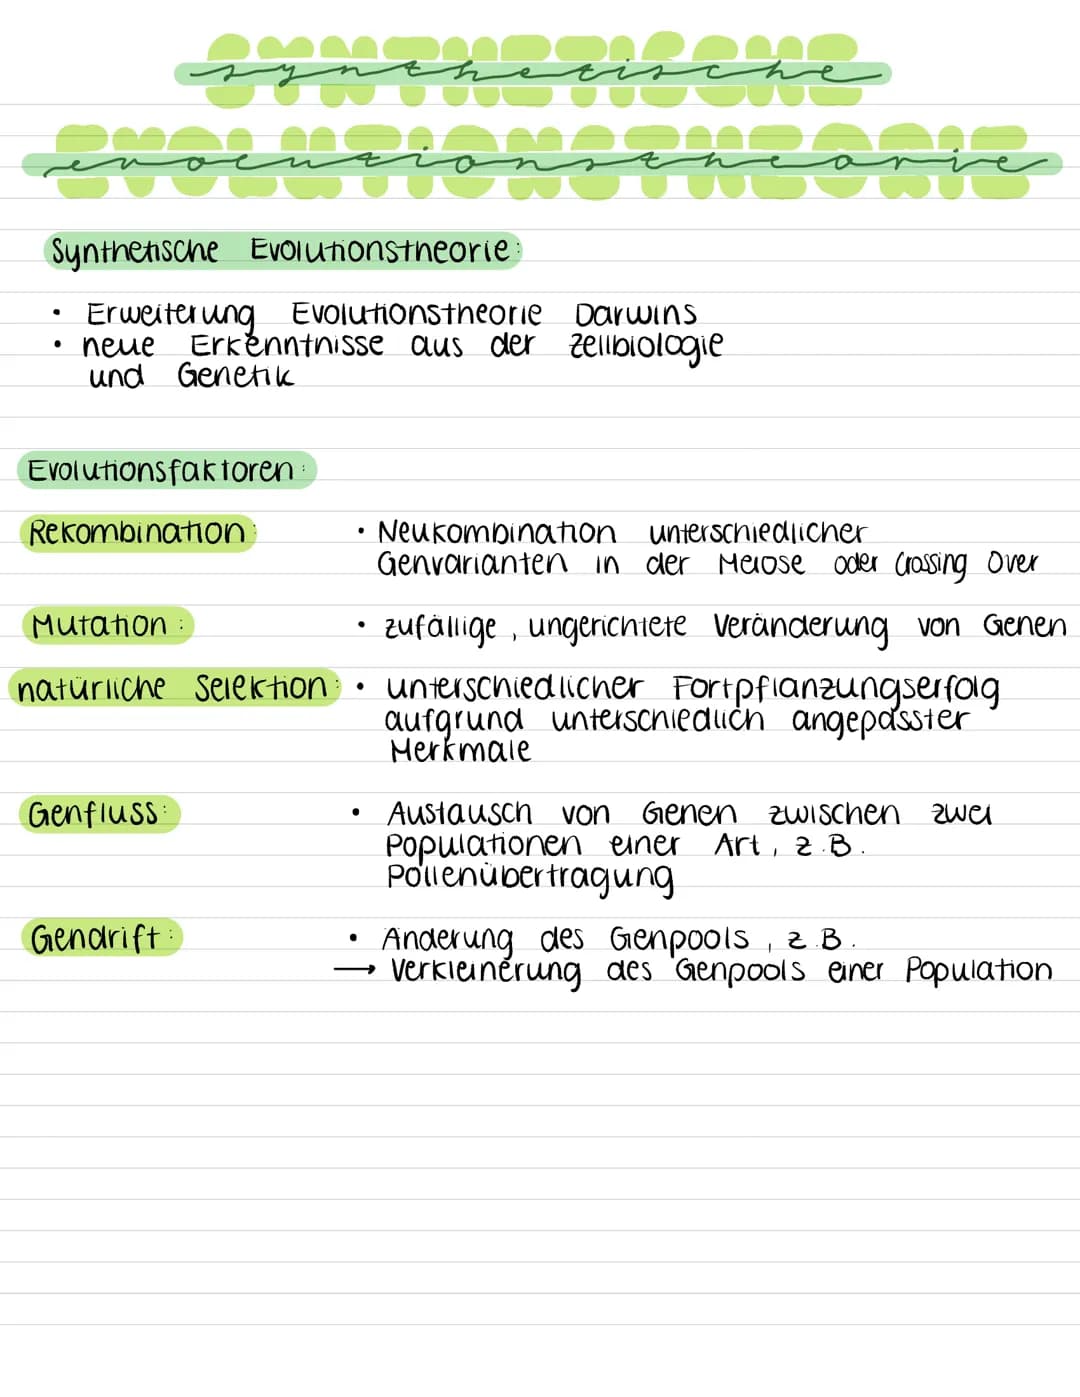 synthetische
evolutionstheorie
Synthetische Evolutionstheorie:
• Erweiterung Evolutionstheorie Darwins
• neue Erkenntnisse aus der Zellbiologie
und Genetik
Evolutionsfaktoren:
Rekombination: • Neukombination unterschiedlicher
Genvarianten in der Meiose oder Crossing Over
Mutation: • zufällige, ungerichtete Veränderung von Genen
natürliche Selektion: • unterschiedlicher Fortpflanzungserfolg
aufgrund unterschiedlich angepasster
Merkmale
Genfluss: • Austausch von Genen zwischen zwei
Populationen einer Art, z.B.
Pollenübertragung
Gendrift: • Änderung des Genpools, z.B.
→ Verkleinerung des Genpools einer Population